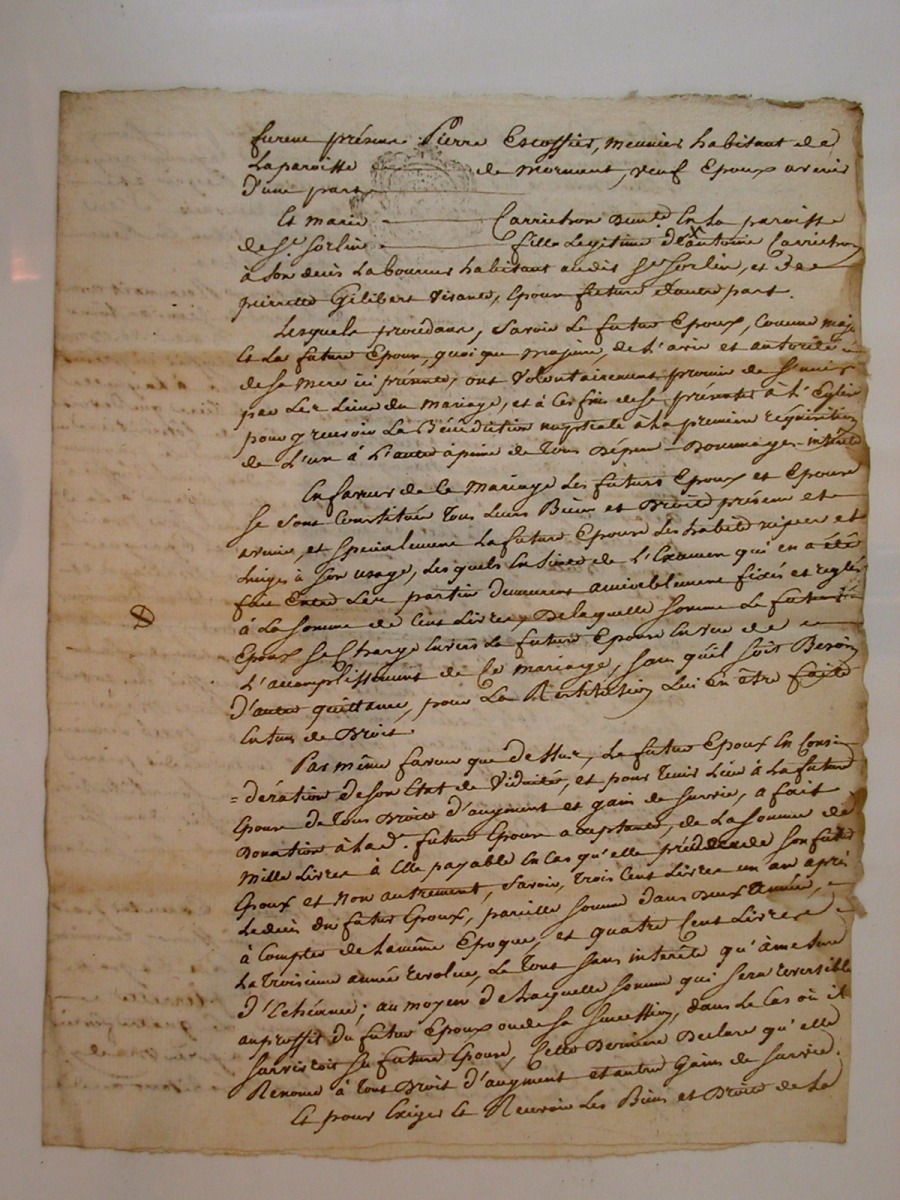 furent présens Pierre Escoffier, meunier habitant de
la paroisse de Mornant, veuf Epoux avenir
d'une part
Et marie Carrichon Demte. En la paroisse
de St. Sorlin fille Legitime d'antoine Carrichon
à son décès Laboureur habitant audit St Sorlin, et de
pierrette Gilibert vivante, Epouse future d'autre part.
Lesquels procedans, savoir Le futur Epoux, comme maj
Et La future Epouse, quoi que majeure, de L'avis et autorité
de sa mere ici présente, ont volontairement promis de s'unir
par Les Liens du Mariage, et à ces fins de se présenter à L'Eglise
pour y recevoir La Bénédiction nuptiale à la premiere réquisition
de L'un à L'autre à peine de Tous Dépens Dommages intérêts
En faveur de ce Mariage Les futurs Epoux et Epouse
se sont Constitués Tous Leurs Biens et Droits présens et
avenir, et spécialement La future Epouse Les habits nippes et
Linges à son usage, Lesquels En suite de L'Examen qui en a été
fait Entre Les parties Demeurent amiablement fixés et reglés
à La somme de Cent Livres, De laquelle somme Le futur
Epoux se Charge Envers La future Epouse En vue de
L'accomplissement de Ce Mariage, sans qu'il soit Besoin
D'autre quittance, pour La Restitution Lui en être faite
En tems de Droit.
Par même faveur que dessus, Le futur Epoux En Consi
=dération de son Etat de Viduité, et pour Tenir Lieu à La future
Epouse de Tous Droits d'augment et gain de survie, a fait
Donation à La de. future Epouse acceptante, de La somme de
Mille Livres à Elle payable En Cas qu'elle précede son futur
Epoux et Non autrement, savoir, Trois Cent Livres un an après
Le décès du futur Epoux, pareille somme dans Deux Années,
à Compter de La même Epoque, et quatre Cent Livres
La Troisieme année revolue, Le Tout sans intérêts qu'à mesure
D'Echéance; au moyen de Laquelle somme qui sera reversible
au proffit du futur Epoux ou de sa succession, dans Le Cas où il
survivroit sa future Epouse, Cette Derniere Declare qu'elle
Renonce à Tout Droit d'augment et autres Gains de survie.
Et pour Exiger Et Recevoir Les Biens et Droits de La